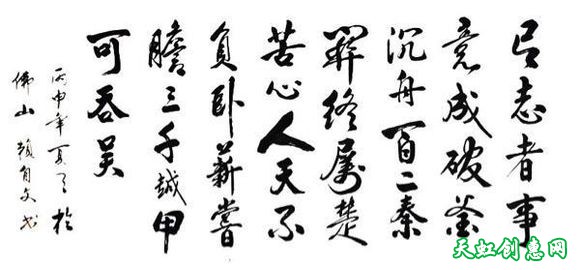 有志者事
竟成破釜
沉舟百二秦
關終属楚
苦心人天不
負卧薪嘗
膽三千越甲
可吞吴
丙申年夏月於
佛山賴自文书
天虹创意网